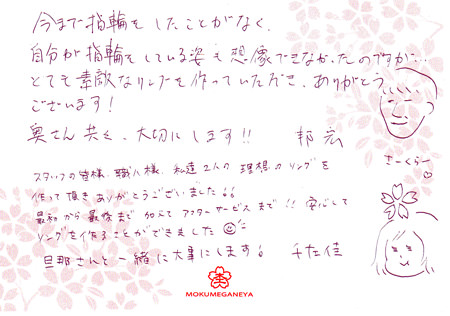 今まで指輪をしたことがなく、
自分が指輪をしている姿も想像できなかったのですが…
とても素敵なリングを作っていただき、ありがとう
ございます!
奥さん共々、大切にします!! 邦宏
さーくらー
スタッフの皆様、職人様、私達2人の理想のリングを
作って頂きありがとうございました!!
最初から最後まで 加えてアフターサービスまで!! 安心して
リングを作ることができました
旦那さんと一緒に大事にします! 千佐佳
MOKUMEGANEYA